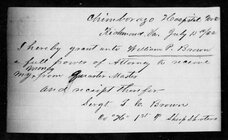 Chimborazo Hospital
Richmond, Va. July 15/62
I hereby grant unto William P. Brown
a full power of Attorney to receive
money from Quarter Master
and receipt therefor
Sergt. L. C. Brown
Co "K" 1st